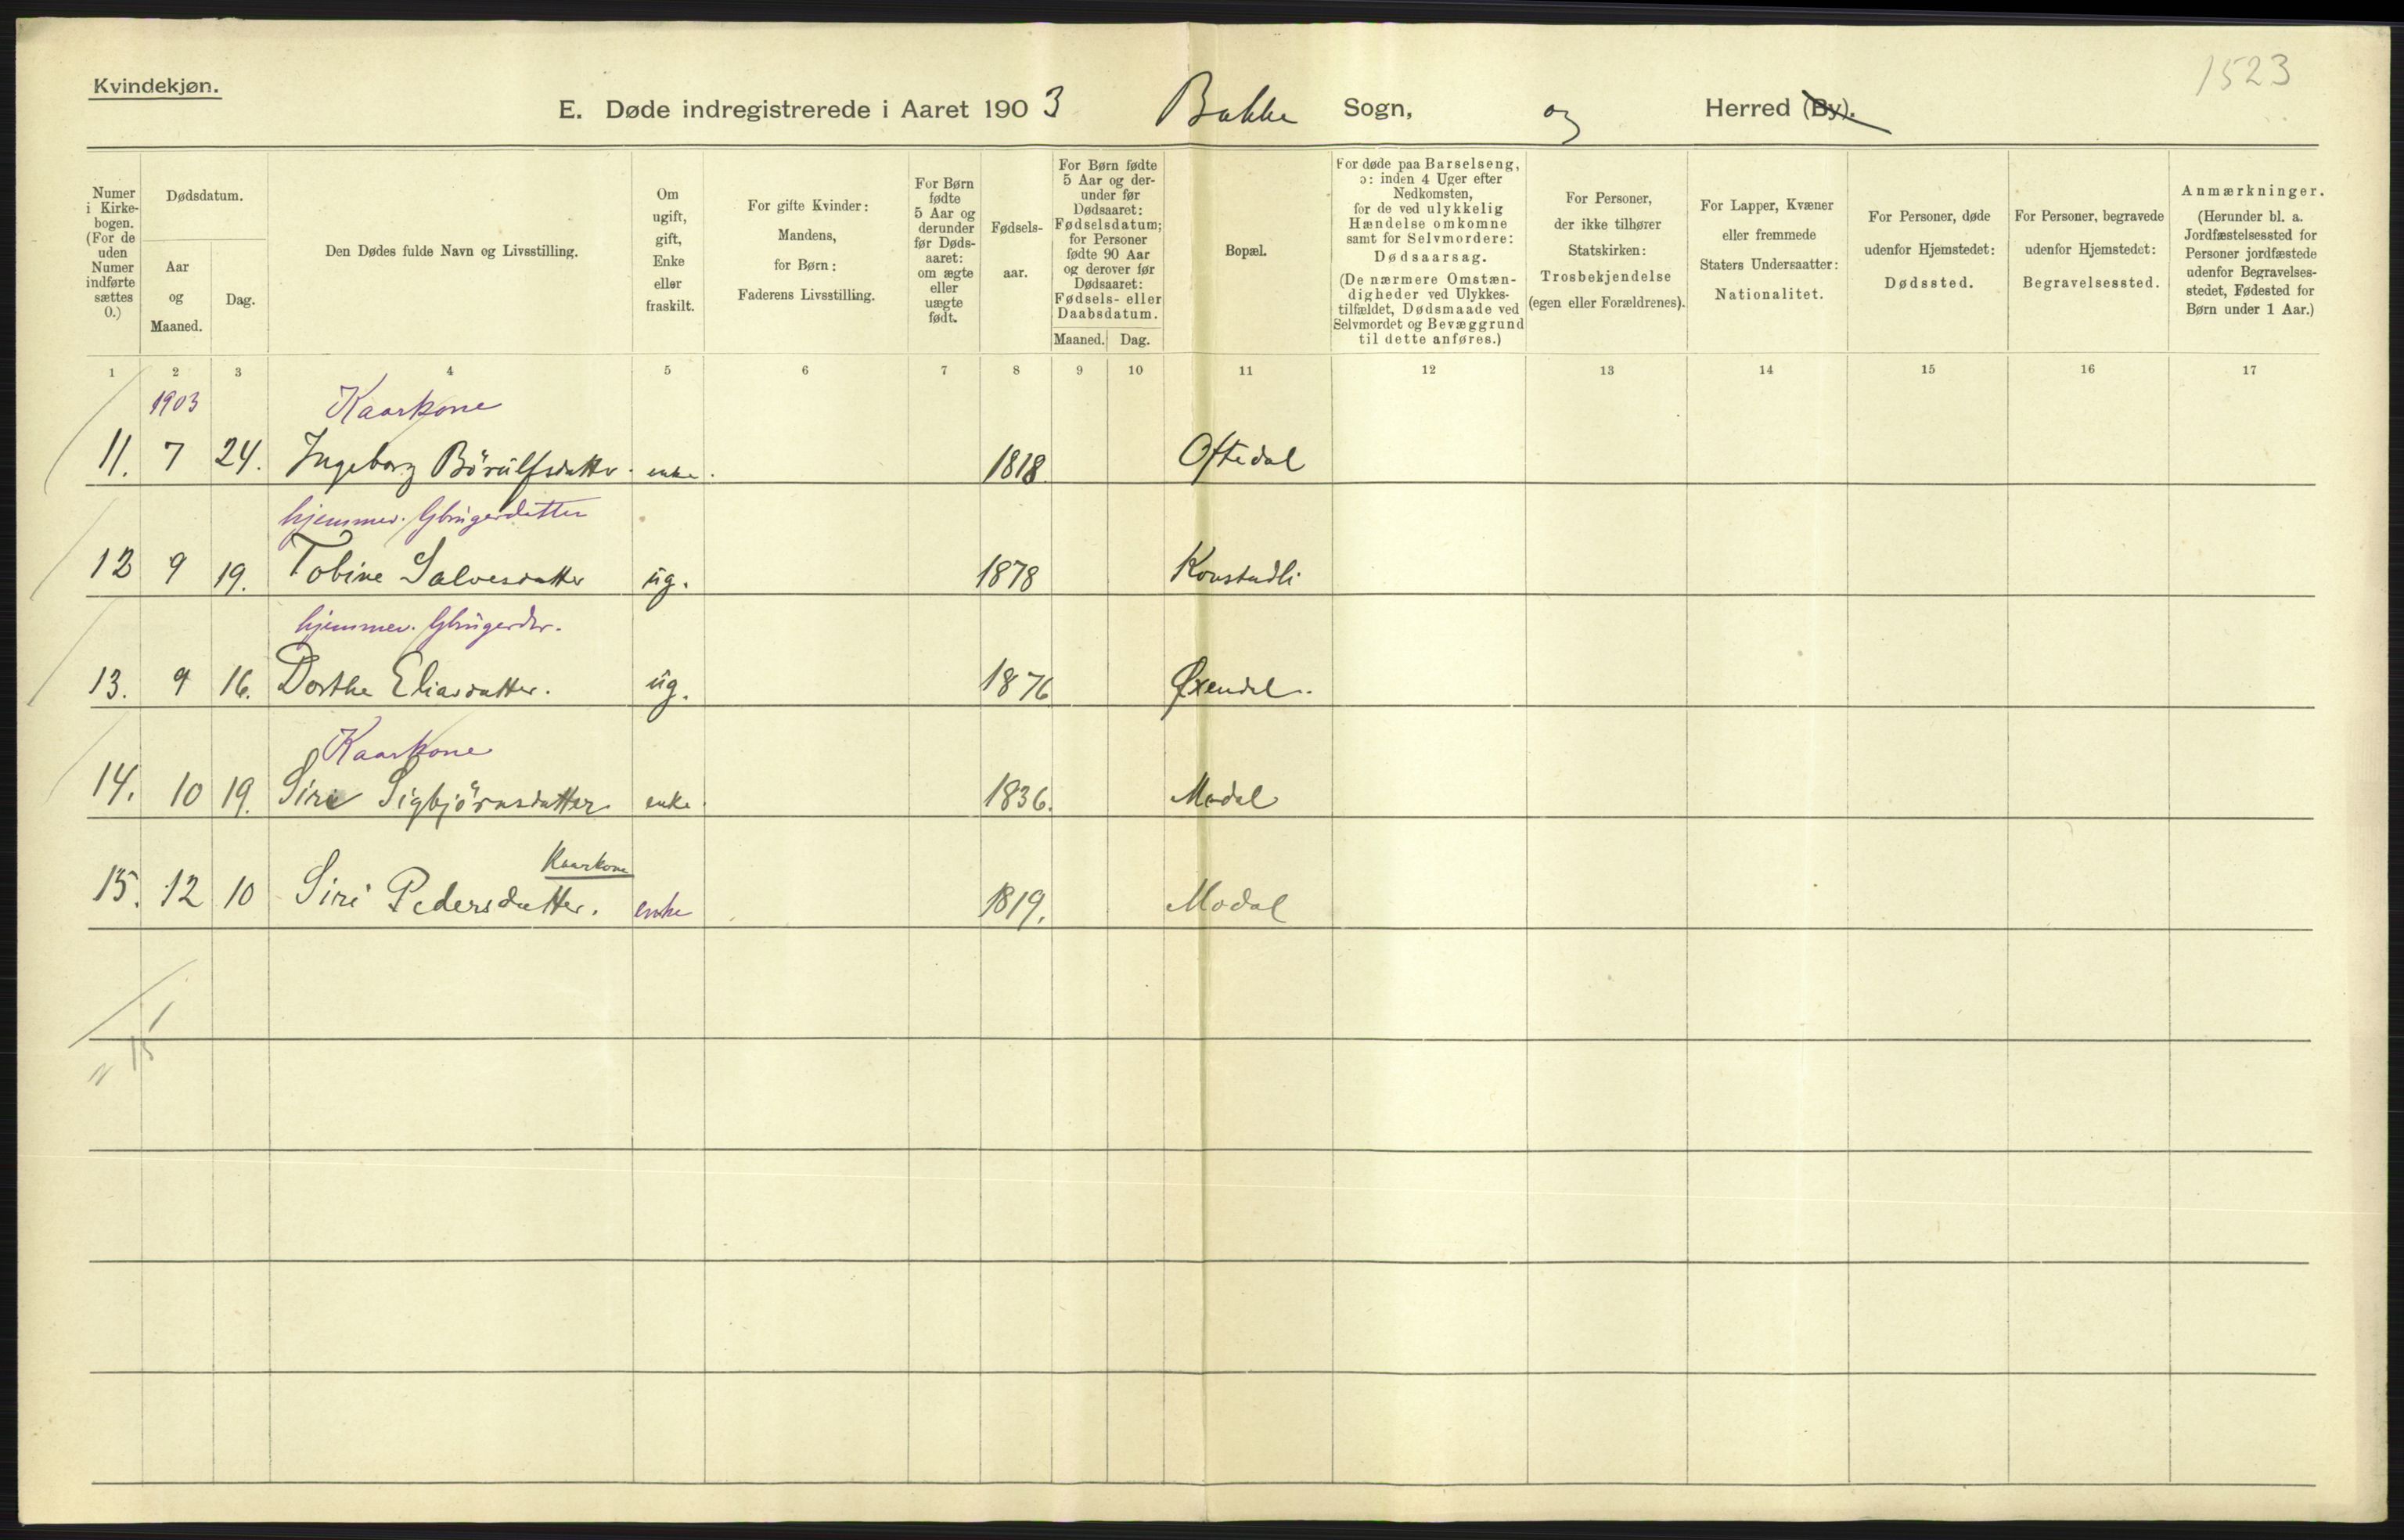 1523
Kvindekjøn.
E. Døde indregistrerede i Aaret 1903 Bakke Sogn, og Herred (By).
Numer i Kirke-bogen. (For de uden Numer indførte sættes 0.)
Dødsdatum.
Aar og Maaned.
Dag.
Den Dødes fulde Navn og Livsstilling.
Om ugift, gift, Enke eller fraskilt.
For gifte Kvinder: Mandens, for Børn: Faderens Livsstilling.
For Børn fødte 5 Aar og derunder før Døds-aaret: om ægte eller uægte født.
Fødsels-aar.
For Børn fødte 5 Aar og der-under før Dødsaaret: Fødselsdatum; for Personer fødte 90 Aar og derover før Dødsaaret: Fødsels- eller Daabsdatum.
Maaned. Dag.
Bopæl.
For døde paa Barselseng, ɔ: inden 4 Uger efter Nedkomsten, for de ved ulykkelig Hændelse omkomne samt for Selvmordere: Dødsaarsag. (De nærmere Omstæn-digheder ved Ulykkes-tilfældet, Dødsmaade ved Selvmordet og Bevæggrund til dette anføres.)
For Personer, der ikke tilhører Statskirken: Trosbekjendelse (egen eller Forældrenes).
For Lapper, Kvæner eller fremmede Staters Undersaatter: Nationalitet.
For Personer, døde udenfor Hjemstedet: Dødssted.
For Personer, begravede udenfor Hjemstedet: Begravelsessted.
Anmærkninger. (Herunder bl. a. Jordfæstelsessted for Personer jordfæstede udenfor Begravelses-stedet, Fødested for Børn under 1 Aar.)
1 2 3 4 5 6 7 8 9 10 11 12 13 14 15 16 17
1903 Kaarkone
11. 7 24. Ingeborg Börülfsdatter. enke. 1818. Oftedal
hjemmev. Gbrugerdatter
12 9 19. Tobine Salvesdatter ug. 1878 Konstadli
hjemmev. Gbrugerdr.
13. 9 16. Dorthe Eliasdatter. ug. 1876 Øxendal.
Kaarkone
14. 10 19. Siri Sigbjörnsdatter enke. 1836. Modal
Kaarkone
15. 12 10 Siri Pedersdatter. enke 1819. Modal